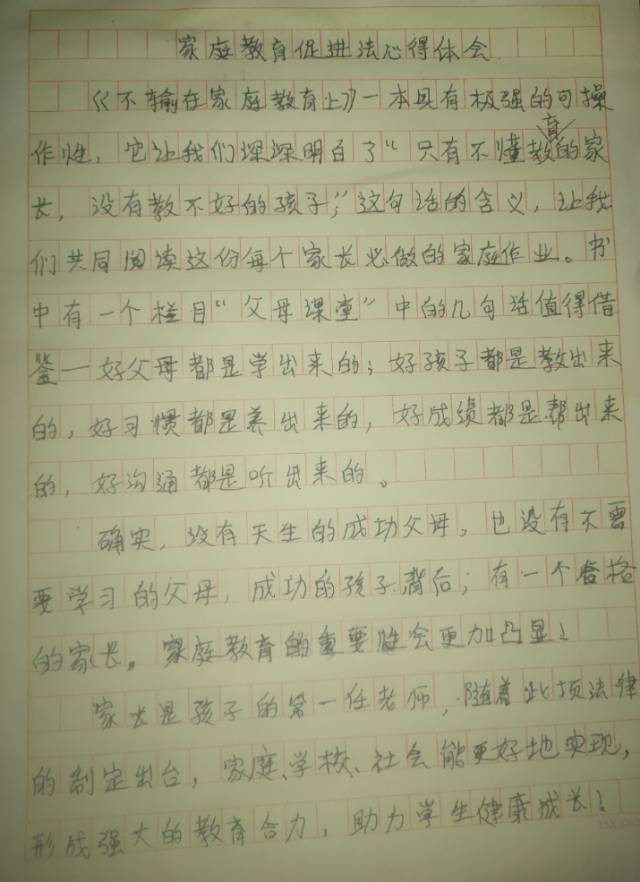 家庭教育促进法心得体会
《不输在家庭教育上》一本具有极强的可操
作性，它让我们深深明白了“只有不懂教育的家
长，没有教不好的孩子”，这句话的含义，让我
们共同阅读这份每个家长必做的家庭作业。书
中有一个栏目“父母课堂”中的几句话值得借
鉴一好父母都是学出来的；好孩子都是教出来
的，好习惯都是养出来的，好成绩都是帮出来
的，好沟通都是听出来的。
确实，没有天生的成功父母，也没有不需
要学习的父母，成功的孩子背后；有一个合格
的家长。家庭教育的重要性会更加凸显！
家长是孩子的第一任老师，随着此项法律
的制定出台，家庭、学校、社会能更好地实现，
形成强大的教育合力，助力学生健康成长！